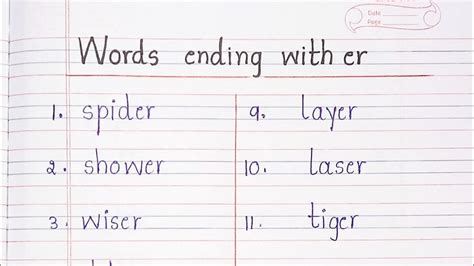 Date
Page
Words ending with er
1. spider
2. shower
3. wiser
9. layer
10. laser
11. tiger